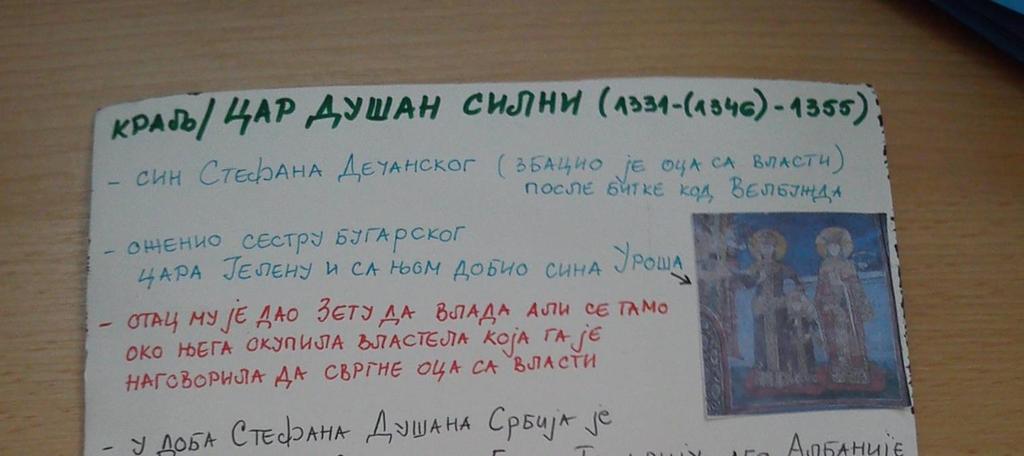 КРАЉ/ЦАР ДУШАН СИЛНИ (1331-(1346)-1355)
- СИН СТЕФАНА ДЕЧАНСКОГ (ЗБАЦИО ЈЕ ОЦА СА ВЛАСТИ)
ПОСЛЕ БИТКЕ КОД ВЕЛБУЖДА
- ОЖЕНИО СЕСТРУ БУГАРСКОГ
ЦАРА ЈЕЛЕНУ И СА ЊОМ ДОБИО СИНА УРОША
- ОТАЦ МУ ЈЕ ДАО ЗЕТУ ДА ВЛАДА АЛИ СЕ ТАМО
ОКО ЊЕГА ОКУПИЛА ВЛАСТЕЛА КОЈА ГА ЈЕ
НАГОВОРИЛА ДА СВРГНЕ ОЦА СА ВЛАСТИ
- У ДОБА СТЕФАНА ДУШАНА СРБИЈА ЈЕ
АЛБАНИЈЕ